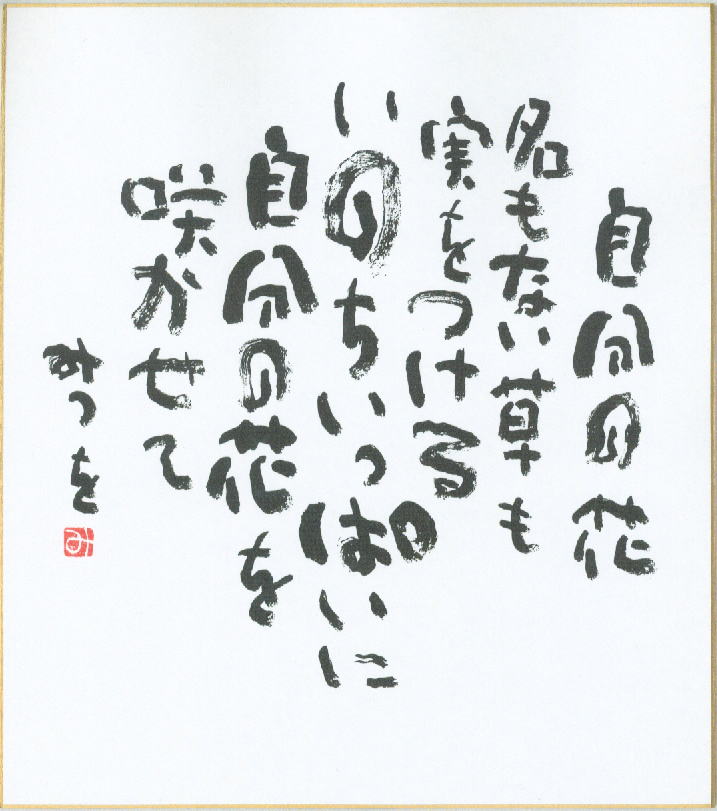 自分の花
名もない草も
実をつける
いのちいっぱいに
自分の花を
咲かせて
みつを
み